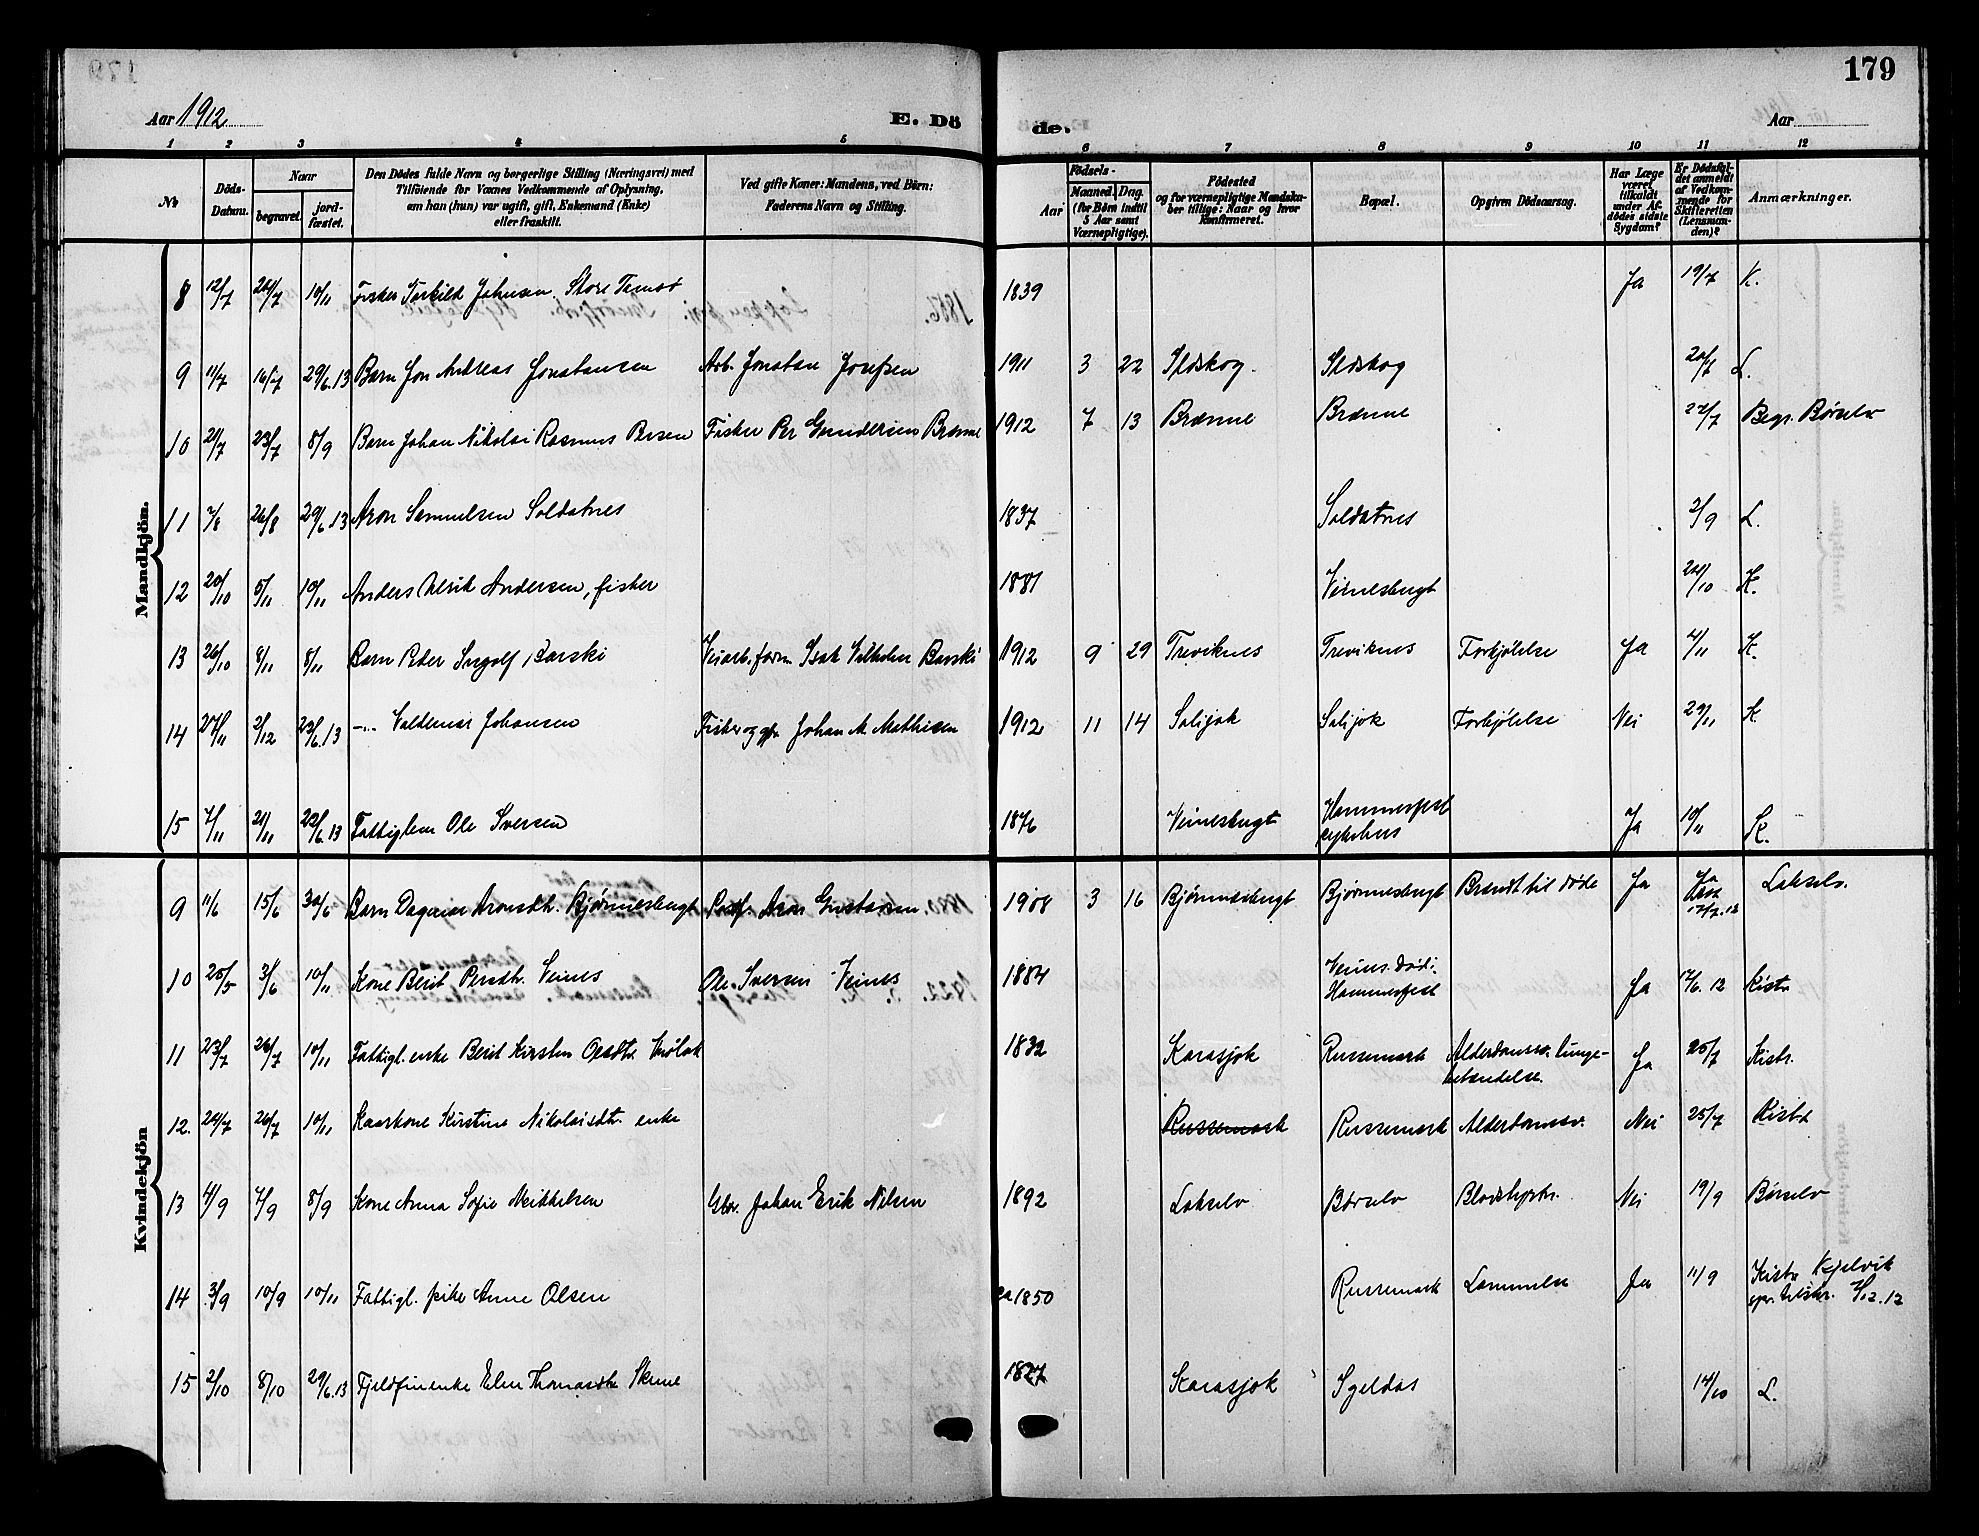 179
Aar 1912
E. Dö
de.
Aar
1 2 3 4 5 6 7 8 9 10 11 12
№
Döds-Datum.
Naar
begravet.
jordfæstet.
Den Dödes fulde Navn og borgerlige Stilling (Næringsvei) med
Tilföiende for Voxnes Vedkommende af Oplysning,
om han (hun) var ugift, gift, Enkemand (Enke)
eller fraskilt.
Ved gifte Koner: Mandens, ved Börn:
Faderens Navn og Stilling.
Födsels-
Aar
Maaned. Dag.
(for Börn indtil
5 Aar samt
Værnepligtige).
Födested
og for værnepligtige Mandskaber tillige: Naar og hvor
konfirmeret.
Bopæl.
Opgiven Dödsaarsag.
Har Læge
været
tilkaldt
under Afdödes sidste
Sygdom?
Er Dödsfaldet anmeldt
af Vedkommende for
Skifteretten
(Lensmanden)?
Anmærkninger.
Mandkjön.
8 12/7 24/7 10/11 Fisker Torkild Johnsen. Store Tamsø 1839 Ja 19/7 K.
9 11/7 16/7 29/6.13 Barn Jon Andreas Jonatansen Arb. Jonatan Josefsen 1911 3 22 Ildskog. Ildskog 20/7 L.
10 21/7 23/7 8/9 Barn Johan Nikolai Rasmus Persen Fisker Per Gundersen Brænne 1912 7 13 Brænne Brænne 22/7 Begr. Børselv
11 7/8 26/8 29/6.13 Aron Samuelsen Soldatnes 1837 Soldatnes 2/9 L.
12 20/10 5/11 10/11 Anders Ulrik Andersen, fisker 1881 Veinesbugt 24/10 K.
13 26/10 8/11 8/11 Barn Peder Ingolf Barski Veiarb.form. Isak Vilhelm Barski 1912 9 29 Treviknes Treviknes Forkjølelse Ja 4/11 K.
14 27/11 2/12 23/6.13 -"- Valdemar Johansen Fisker og gbr. Johan M. Mathisen 1912 11 14 Salijok Salijok Forkjølelse Nei 29/11 K
15 7/11 21/11 22/6.13 Fattiglem Ole Iversen 1876 Veinesbugt Hammerfest
sykehus Ja 10/11 K.
Kvindekjön
9 11/6 15/6 30/6 Barn Dagmar Aronsdtr. Bjørnnesbugt Aron Gustavsen 1908 3 16 Bjørnnesbugt Bjørnnesbugt Brændt til døde Ja Ja
17/7.12 Lakselv.
10 25/5 3/6 10/11 Kone Berit Persdtr. Veines Ole Iversen Veines 1884 Veines. Død i
Hammerfest Ja 17/6.12 Kistr
11 23/7 26/7 10/11 Fattigl. enke Berit Kirsten Olsdtr. 1832 Karasjok Russemark Alderdomssv. lunge-
betændelse. Ja 25/7 Kistr.
12. 24/7 26/7 10/11 Kaarkone Kirstine Nikolaisdtr. enke Russemark Russemark Alderdomssv. Nei 25/7 Kistr
13 4/9 7/9 8/9 Kone Anna Sofie Mikkelsen Gbr. Johan Erik Nilsen 1892 Lakselv Børselv Blodstyrtn. Nei 19/9 Børselv
14 3/9 10/9 10/11 Fattigl. pike Anne Olsen ca 1850 Russemark Lammelse Ja 11/9 Kistr Kjelvik
15 2/10 8/10 29/6.13 Fjeldfinenke Elen Thomasdtr. Skum 1827 Karasjok Igeldas 14/10 L.